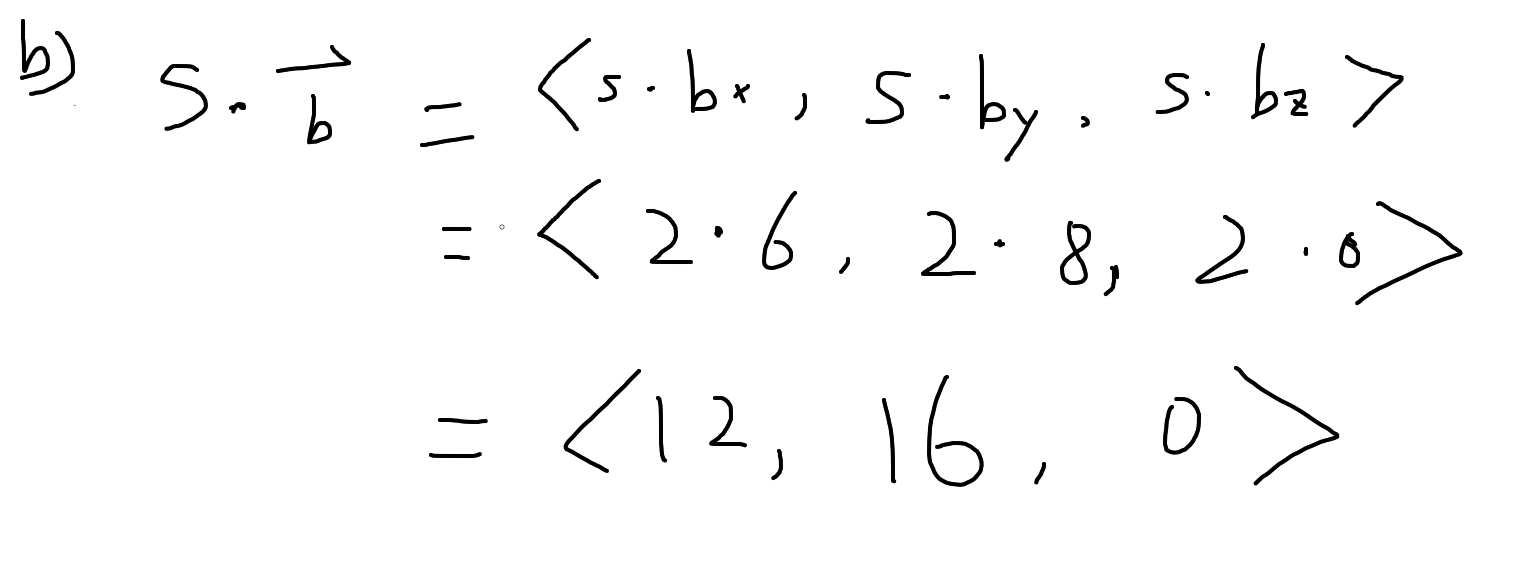 b) S · b⃗ = <s · bx, s · by, s · bz>
= <2 · 6, 2 · 8, 2 · 0>
= <12, 16, 0>